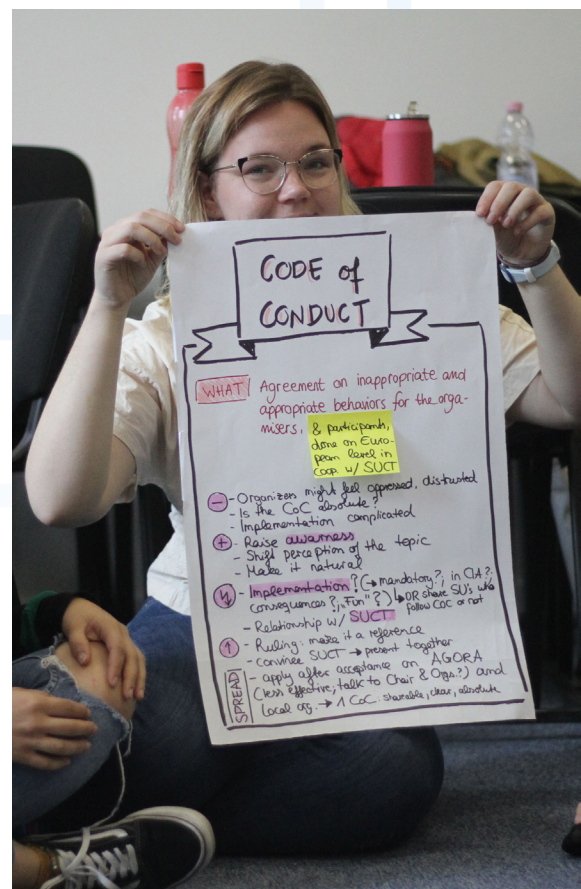 CODE of
CONDUCT
WHAT Agreement on inappropriate and
appropriate behaviors for the orga-
nisers,
& participants,
done on Euro-
pean level in
coop. w/ SUCT
- Organizers might feel oppressed, distrusted
- Is the CoC absolute?
- Implementation complicated
+ - Raise awarness
- Shift perception of the topic
- Make it natural
- Implementation? (→ mandatory?, in CIA?,
consequences?, "Fun"?) ↳ OR share SU's who
follow COC or not
- Relationship w/ SUCT
↑ - Ruling: make it a reference
- convince SUCT → present together
SPREAD - apply after acceptance on AGORA
(less effective, talk to Chair & Orgs?) and
Local org. → 1 CoC: shareable, clear, absolute